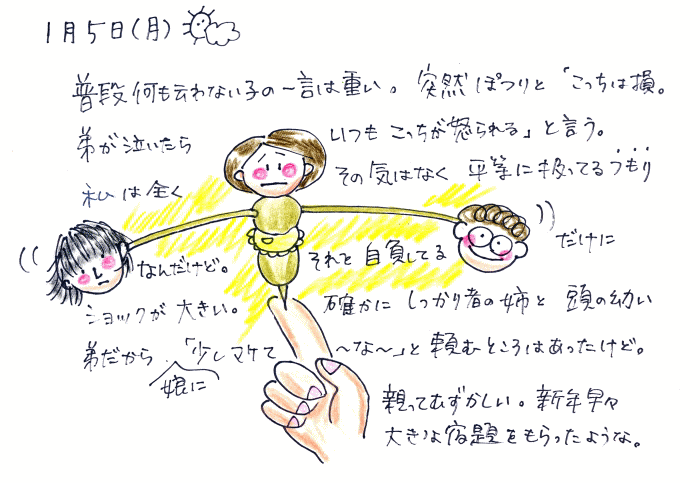 1月5日(月)
普段何も云わない子の一言は重い。突然ぽつりと「こっちは損。
弟が泣いたら いつもこっちが怒られる」と言う。
私は全く その気はなく 平等に扱ってるつもり
なんだけど。 それを自負してる だけに
ショックが大きい。 確かにしっかり者の姉と頭の幼い
弟だから、娘に「少しマケて 〜な〜」と頼むところはあったけど。
親ってむずかしい。新年早々
大きな宿題をもらったような。